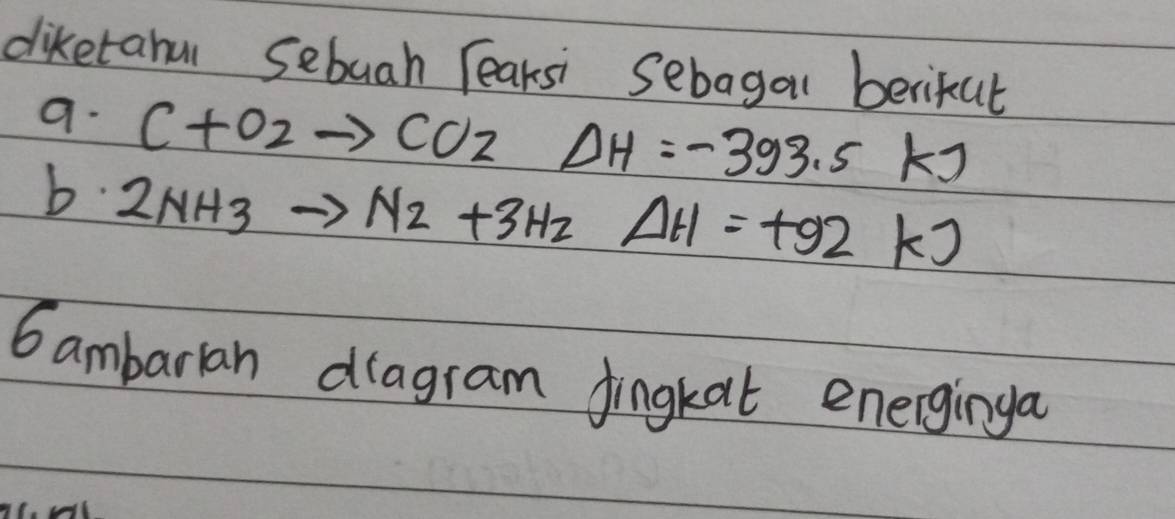 diketahui Sebuah reaksi sebagai berikut
a. C + O2 → CO2 ΔH = -393.5 kJ
b. 2NH3 → N2 + 3H2 ΔH = +92 kJ
Gambarkan diagram tingkat energinya